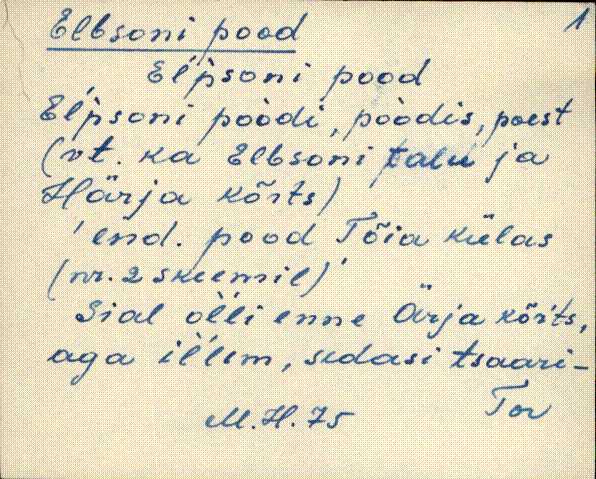 Elbsoni pood 1
El'p̀soni pood
El'p̀soni pòodi, pòodis, poest
(vt. ka Elbsoni talu ja
Härja kõrts)
'end. pood Tõia külas
(nr. 2 skeemil)'
Sial òlli enne Ärja kõrts,
aga il'lem, sedasi tsaari-
Tor
M.H. 75